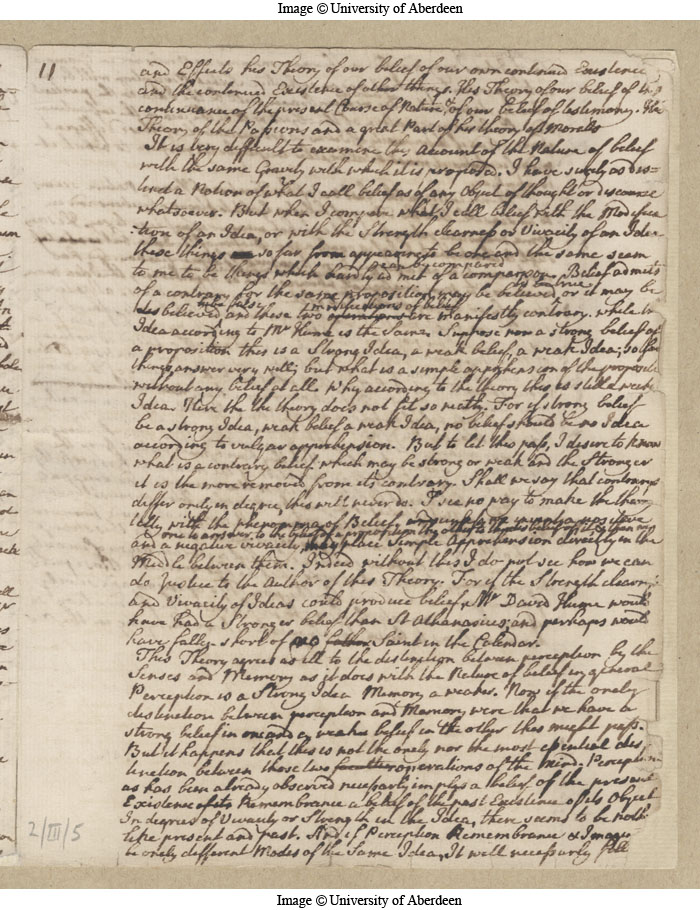 Image © University of Aberdeen
11
and Effects his Theory of our belief of our own continued Existence
and the continued Existence of other things. His Theory of our belief of the
continuance of the present Course of Nature, & of our belief of testimony. His
Theory of the Passions and a great Part of his theory of Morals
It is very difficult to examine this account of the Nature of belief
with the same Gravity with which it is proposed. I have surely as dis=
tinct a Notion of what I call belief as of any Object of thought or discourse
whatsoever. But when I compare what I call belief with the Modifica
tion of an Idea, or with the Strength clearness or Vivacity of an Idea
these things so far from appearing to be one and the same seem
can be compared
to me to be things which hardly admit of a comparison. Belief admits
of a contrary for the same proposition may be believed to be true or it may be
believed to be false
believed and these two operations are manifestly contrary. while the
Idea according to Mr Hume is the Same. Suppose now a strong belief of
a proposition this is a Strong Idea, a weak belief, a weak Idea; so far
things answer very well; but what is a simple apprehension of the proposition
without any belief at all. Why according to the theory this is still a weaker
Idea. Here the the theory does not fit so neatly. For if strong belief
be a strong Idea, weak belief a weak Idea, no belief should be no Idea
according to vulgar apprehension. But to let this pass, I desire to know
what is a contrary belief which may be strong or weak and the Stronger
it is the more removed from its contrary. Shall we say that contrarys
differ only in degree, this will never do. I see no way to make the theory
tally with the phenomena of Belief,
and a negative vivacity, place Simple Apprehension directly in the
Middle between them. Indeed without this I do not see how we can
do Justice to the Author of this Theory. For if the Strength clearness
and Vivacity of Ideas could produce belief Mr David Hume would
have had a Stronger belief than St Athanasius; and perhaps would
have fallen short of no Saint in the Calendar.
This Theory agrees as ill to the distinction between perception by the
Senses and Memory as it does with the Nature of belief in general
Perception is a Strong Idea Memory a weaker. Now if the onely
distinction between perception and Memory were that we have a
strong belief in one and a weaker belief in the other this might pass.
But it happens that this is not the onely nor the most essential dis
tinction between these two operations of the Mind. Perception
as has been already observed necessarly implys a belief of the present
Existence of its Remembrance a belief of the past Existence of its Object
In degrees of Vivacity or Strength in the Idea, there seems to be nothing
like present and past. And if Perception Remembrance & Imagin
be onely different Modes of the Same Idea, It will necessarly
2/III/5
Image © University of Aberdeen